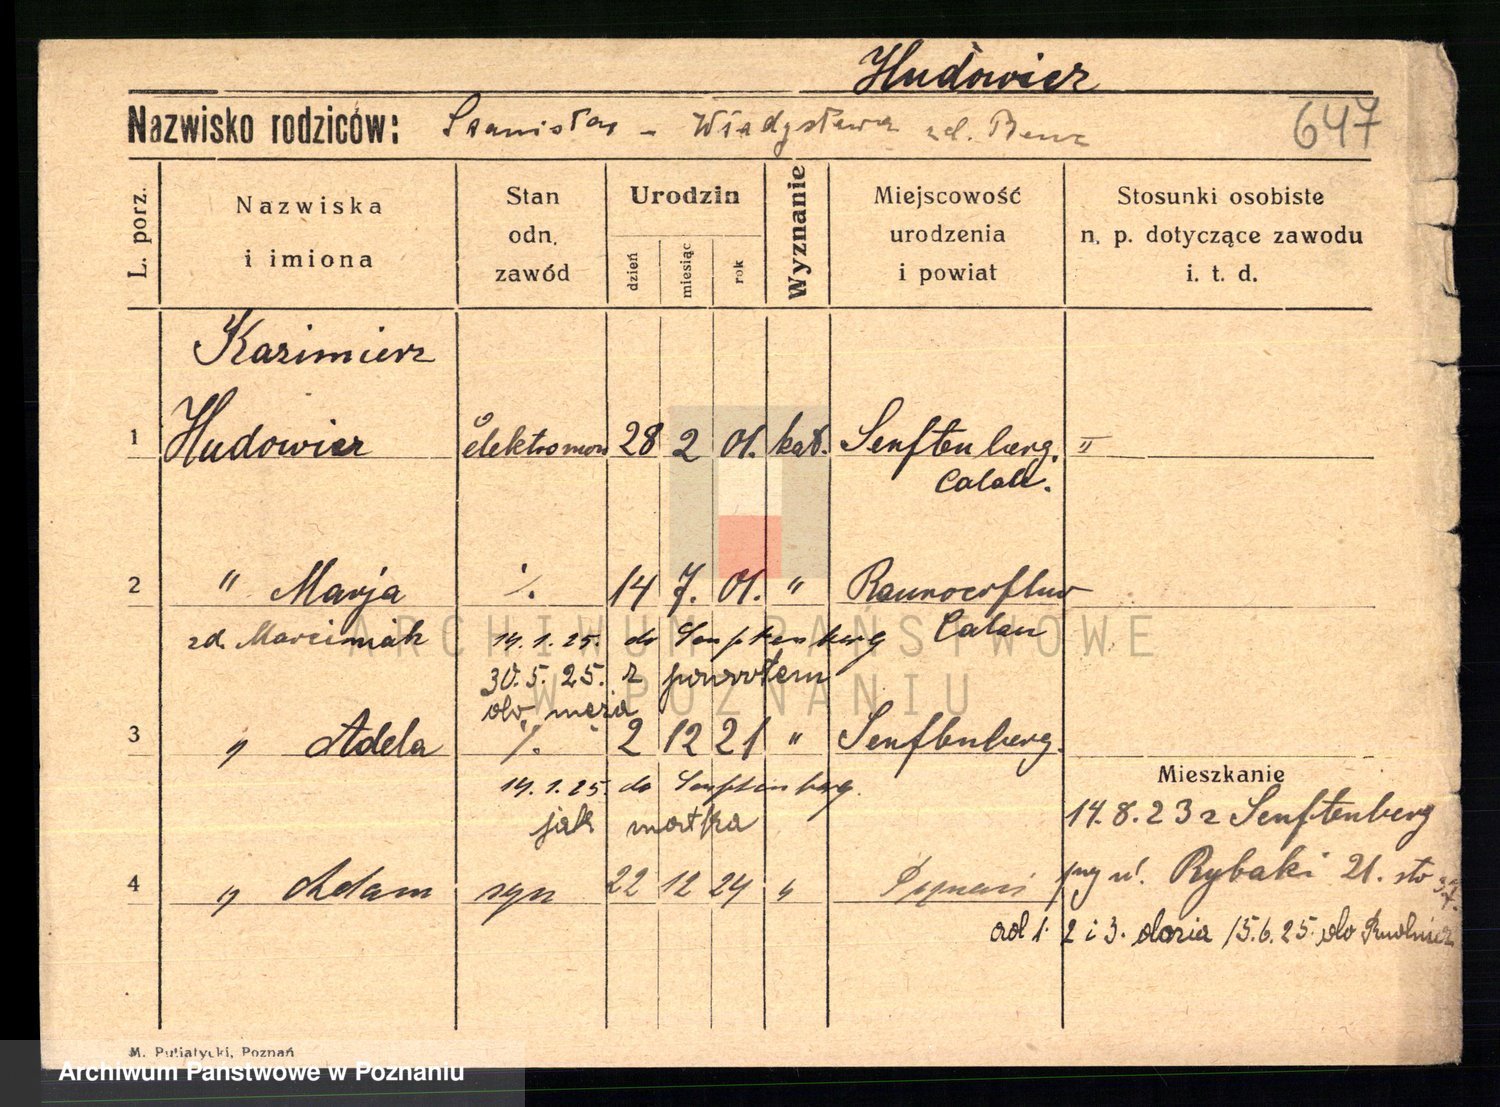 Hudowicz
Nazwisko rodziców: Stanisław - Władysława zd. Benc
647
L. porz.
Nazwiska
i imiona
Stan
odn.
zawód
Urodzin
dzień
miesiąc
rok
Wyznanie
Miejscowość
urodzenia
i powiat
Stosunki osobiste
n. p. dotyczące zawodu
i. t. d.
Kazimierz
1 Hudowicz elektromon 28 2 01. kat. Senftenberg. II
Calau.
2 " Marja ·/. 14 7. 01. "
Calau
zd. Marciniak 14.1.25. do Senftenberg
30.5.25. z powrotem
do męża
3 " Adela ·/. 2 12 21 " Senftenberg.
14.1.25. do Senftenberg.
jak matka
Mieszkanie
14.8.23 z Senftenberg
4 " Adam syn 22 12 24 " Poznań
ul. Rybaki 21.
od 1. 2 i 3. dozia 15.6.25. do
M. Putiatycki, Poznań
ARCHIWUM PAŃSTWOWE
W POZNANIU
Archiwum Państwowe w Poznaniu